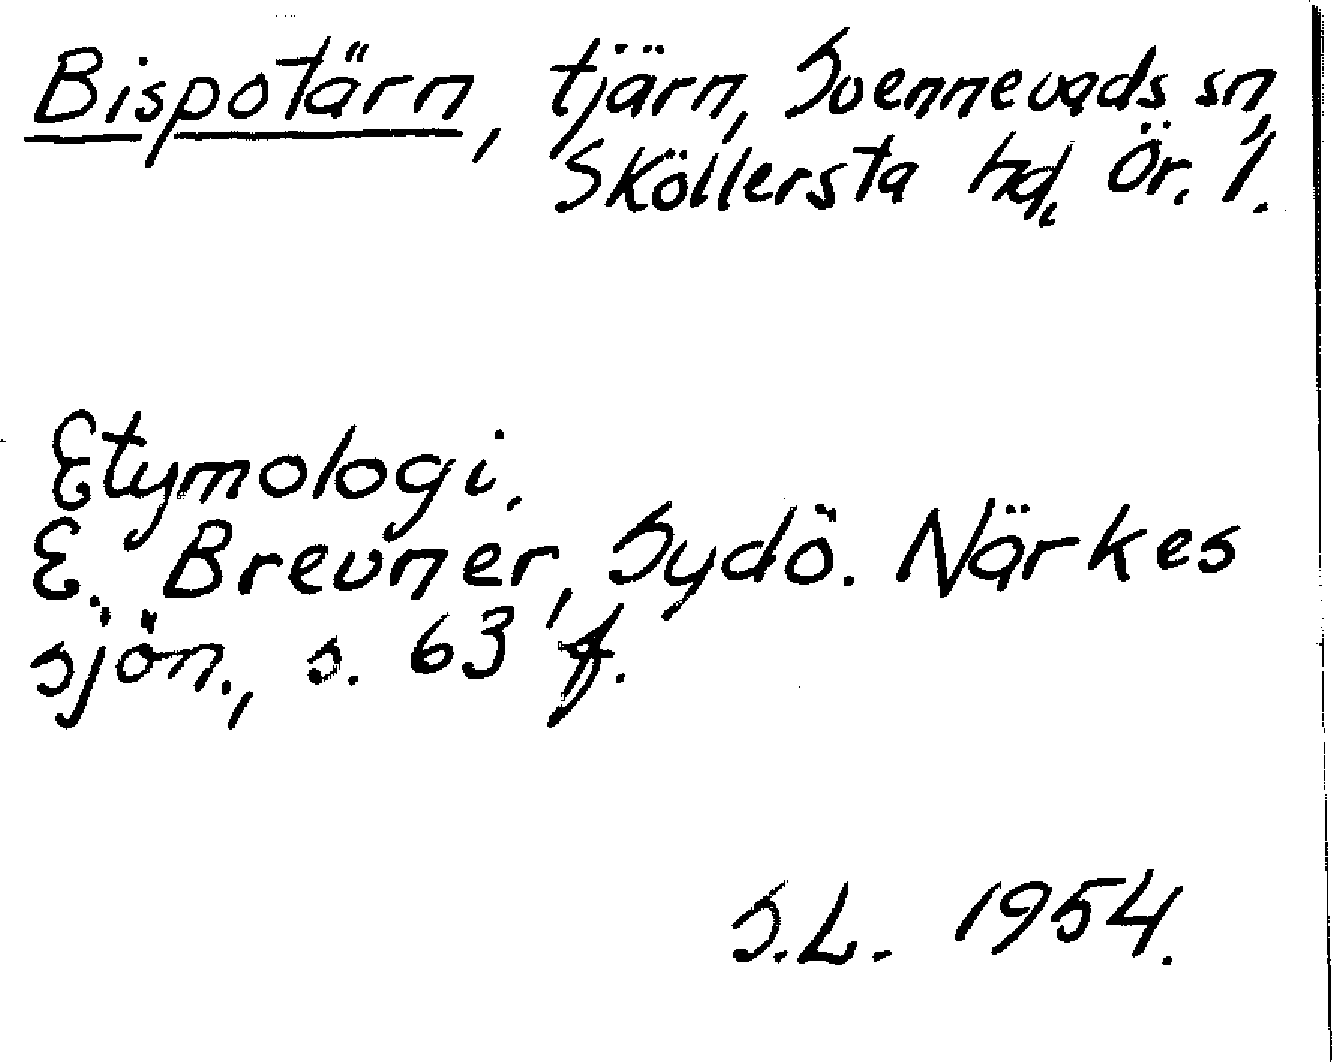 Bispotärn, tjärn, Svennevads sn,
Sköllersta hd, Ör. l.
Etymologi.
E. Brevner, Sydö. Närkes
sjön., s. 63 f.
S.L. 1954.